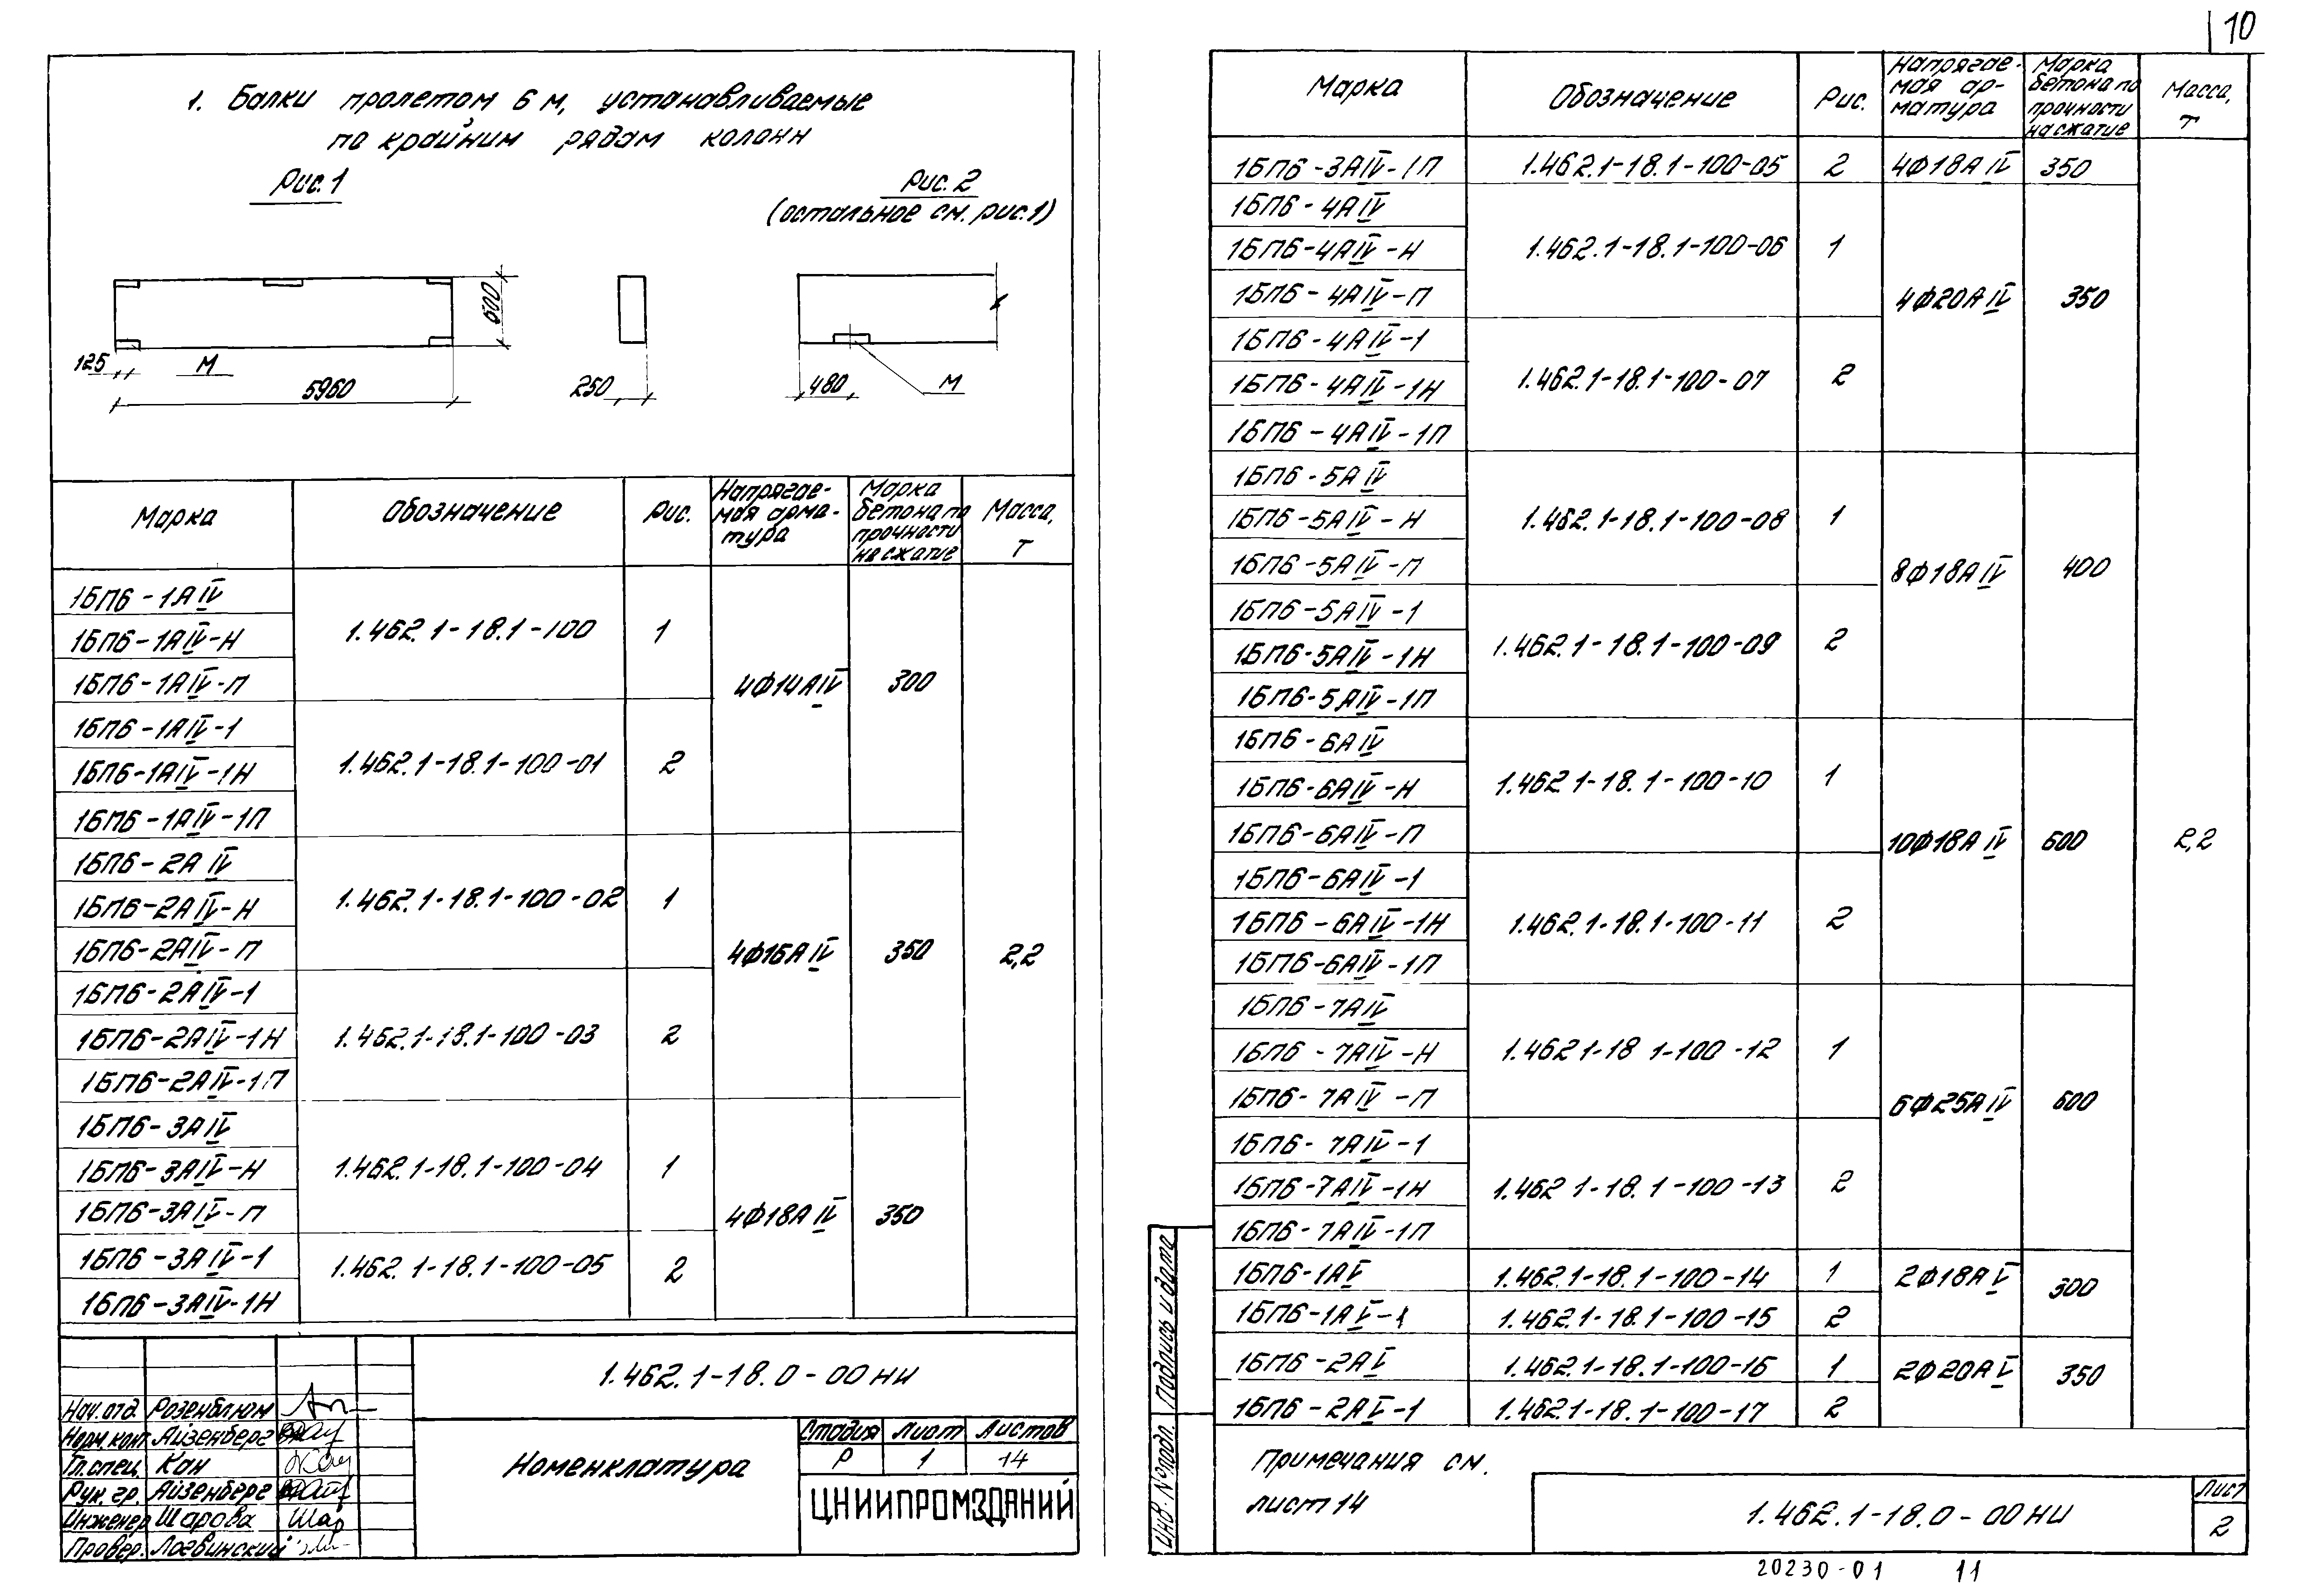 10
1. Балки пролетом 6 м, устанавливаемые
по крайним рядам колонн
Рис. 1
Рис. 2
(остальное см. рис. 1)
600
125
М
5960
250
480
М
Марка
Обозначение
Рис.
Напрягае-
мая арма-
тура
Марка
бетона по
прочности
на сжатие
Масса,
т
1БП6-1АIV
1БП6-1АIV-Н
1БП6-1АIV-П
1.462.1-18.1-100
1
1БП6-1АIV-1
1БП6-1АIV-1Н
1БП6-1АIV-1П
1.462.1-18.1-100-01
2
4Ф14АIV
300
1БП6-2АIV
1БП6-2АIV-Н
1БП6-2АIV-П
1.462.1-18.1-100-02
1
1БП6-2АIV-1
1БП6-2АIV-1Н
1БП6-2АIV-1П
1.462.1-18.1-100-03
2
4Ф16АIV
350
2,2
1БП6-3АIV
1БП6-3АIV-Н
1БП6-3АIV-П
1.462.1-18.1-100-04
1
1БП6-3АIV-1
1БП6-3АIV-1Н
1.462.1-18.1-100-05
2
4Ф18АIV
350
1.462.1-18.0-00НИ
Нач. отд. Розенблюм
Норм. конт. Айзенберг
Гл. спец. Кан
Рук. гр. Айзенберг
Инженер Шарова
Провер. Логвинский
Номенклатура
Стадия Лист Листов
Р 1 14
ЦНИИПРОМЗДАНИЙ
Марка
Обозначение
Рис.
Напрягае-
мая ар-
матура
Марка
бетона по
прочности
на сжатие
Масса,
т
1БП6-3АIV-1П 1.462.1-18.1-100-05 2 4Ф18АIV 350
1БП6-4АIV
1БП6-4АIV-Н
1БП6-4АIV-П
1.462.1-18.1-100-06
1
1БП6-4АIV-1
1БП6-4АIV-1Н
1БП6-4АIV-1П
1.462.1-18.1-100-07
2
4Ф20АIV
350
1БП6-5АIV
1БП6-5АIV-Н
1БП6-5АIV-П
1.462.1-18.1-100-08
1
1БП6-5АIV-1
1БП6-5АIV-1Н
1БП6-5АIV-1П
1.462.1-18.1-100-09
2
8Ф18АIV
400
1БП6-6АIV
1БП6-6АIV-Н
1БП6-6АIV-П
1.462.1-18.1-100-10
1
1БП6-6АIV-1
1БП6-6АIV-1Н
1БП6-6АIV-1П
1.462.1-18.1-100-11
2
10Ф18АIV
600
2,2
1БП6-7АIV
1БП6-7АIV-Н
1БП6-7АIV-П
1.462 1-18 1-100-12
1
1БП6-7АIV-1
1БП6-7АIV-1Н
1БП6-7АIV-1П
1.462 1-18.1-100-13
2
6Ф25АIV
600
1БП6-1АV 1.462.1-18.1-100-14 1
1БП6-1АV-1 1.462.1-18.1-100-15 2
2Ф18АV
300
1БП6-2АV 1.462.1-18.1-100-16 1
1БП6-2АV-1 1.462.1-18.1-100-17 2
2Ф20АV
350
Примечания см.
лист 14
1.462.1-18.0-00НИ
Лист
2
Инв. № подл. Подпись и дата
20230-01 11